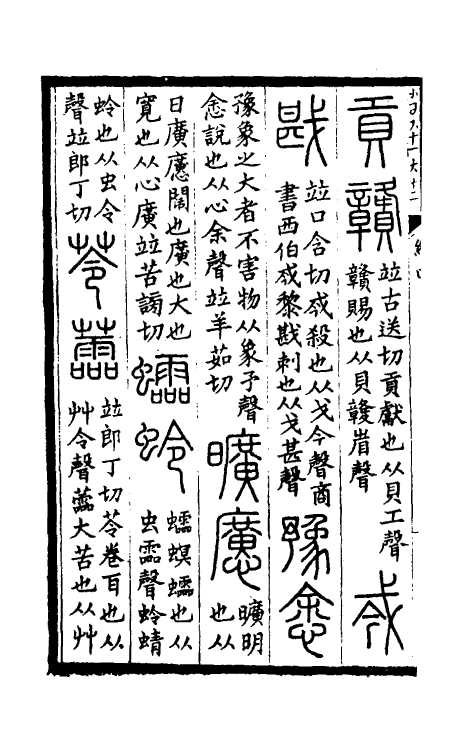 貢贛
竝古送切貢獻也从貝工聲
贛賜也从貝竷省聲
𢦟
戡
竝口含切𢦟殺也从戈今聲商
書西伯𢦟黎戡刺也从戈甚聲
豫悆
豫象之大者不害物从象予聲
悆說也从心余聲竝羊茹切
曠懬
曠明
也从
日廣懬闊也廣也大也
寬也从心廣竝苦謗切
𧕅蛉
𧕅螟𧕅也从
虫霝聲蛉蜻
蛉也从虫令
聲竝郎丁切
苓蘦
竝郎丁切苓卷百也从
艸令聲蘦大苦也从艸